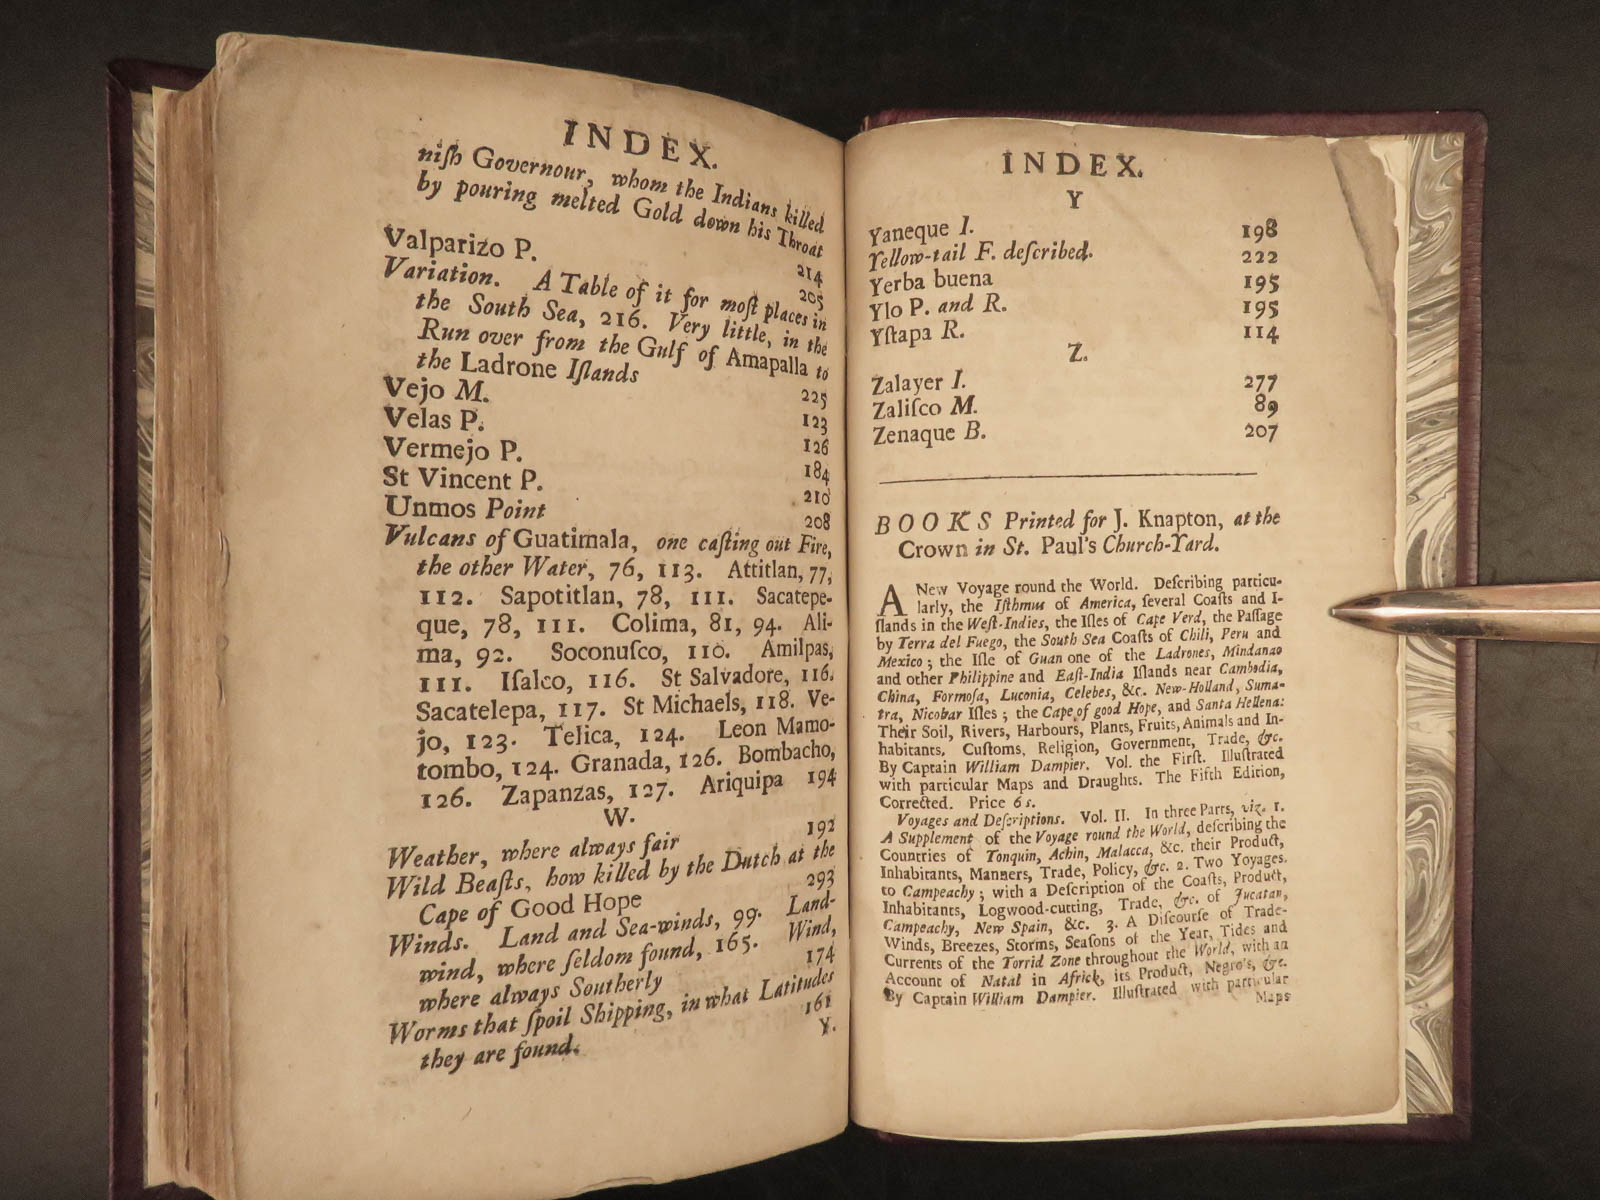 INDEX.
niſh Governour, whom the Indians killed
by pouring melted Gold down his Throat
214
Valparizo P.
205
Variation. A Table of it for moſt places in
the South Sea, 216. Very little, in the
Run over from the Gulf of Amapalla to
the Ladrone Iſlands
225
Vejo M.
123
Velas P.
126
Vermejo P.
184
St Vincent P.
210
Unmos Point
208
Vulcans of Guatimala, one caſting out Fire,
the other Water, 76, 113. Attitlan, 77,
112. Sapotitlan, 78, 111. Sacatepe-
que, 78, 111. Colima, 81, 94. Ali-
ma, 92. Soconuſco, 110. Amilpas,
111. Iſalco, 116. St Salvadore, 116.
Sacatelepa, 117. St Michaels, 118. Ve-
jo, 123. Telica, 124. Leon Mamo-
tombo, 124. Granada, 126. Bombacho,
126. Zapanzas, 127. Ariquipa 194
W.
Weather, where always fair 192
Wild Beaſts, how killed by the Dutch at the
Cape of Good Hope 293
Winds. Land and Sea-winds, 99. Land-
wind, where ſeldom found, 165. Wind,
where always Southerly 174
Worms that ſpoil Shipping, in what Latitudes
they are found. 161
Y.
INDEX.
Y
Yaneque I. 198
Yellow-tail F. deſcribed. 222
Yerba buena 195
Ylo P. and R. 195
Yſtapa R. 114
Z.
Zalayer I. 277
Zaliſco M. 89
Zenaque B. 207
BOOKS Printed for J. Knapton, at the
Crown in St. Paul's Church-Yard.
A New Voyage round the World. Deſcribing particu-
larly, the Iſthmus of America, ſeveral Coaſts and I-
ſlands in the Weſt-Indies, the Iſles of Cape Verd, the Paſſage
by Terra del Fuego, the South Sea Coaſts of Chili, Peru and
Mexico; the Iſle of Guan one of the Ladrones, Mindanao
and other Philippine and Eaſt-India Iſlands near Cambodia,
China, Formoſa, Luconia, Celebes, &c. New-Holland, Suma-
tra, Nicobar Iſles; the Cape of good Hope, and Santa Hellena:
Their Soil, Rivers, Harbours, Plants, Fruits, Animals and In-
habitants, Cuſtoms, Religion, Government, Trade, &c.
By Captain William Dampier. Vol. the Firſt. Illuſtrated
with particular Maps and Draughts. The Fifth Edition,
Corrected. Price 6s.
Voyages and Deſcriptions. Vol. II. In three Parts, viz. 1.
A Supplement of the Voyage round the World, deſcribing the
Countries of Tonquin, Achin, Malacca, &c. their Product,
Inhabitants, Manners, Trade, Policy, &c. 2. Two Voyages.
to Campeachy; with a Deſcription of the Coaſts, Product,
Inhabitants, Logwood-cutting, Trade, &c. of Jucatan,
Campeachy, New Spain, &c. 3. A Diſcourſe of Trade-
Winds, Breezes, Storms, Seaſons of the Year, Tides and
Currents of the Torrid Zone throughout the World, with an
Account of Natal in Africk, its Product, Negro's, &c.
By Captain William Dampier. Illuſtrated with particular
Maps